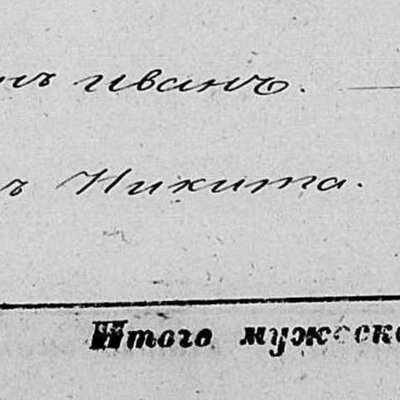 нъ иванъ.
ъ Никита.
Итого мужеско